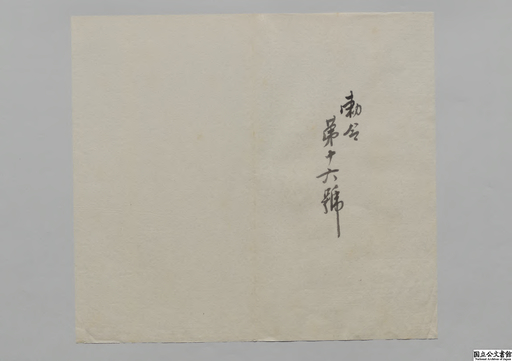 勅令
第十六號
国立公文書館
National Archives of Japan